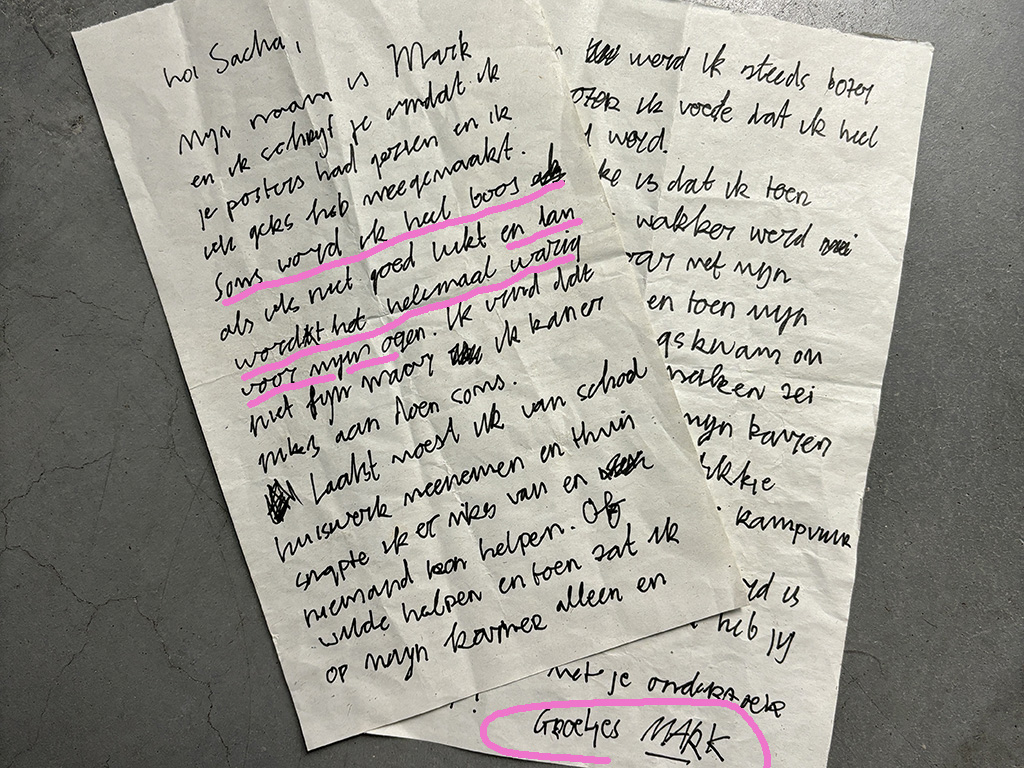 hoi Sacha,
Mijn naam is Mark
en ik schrijf je omdat ik
je posters had gezien en ik
iets geks heb meegemaakt.
Soms word ik heel boos als
als iets niet goed lukt en dan
wordt het helemaal wazig
voor mijn ogen. Ik vind dat
niet fijn maar ik kan er
niks aan doen soms.
Laatst moest ik van school
huiswerk meenemen en thuis
snapte ik er niks van en
niemand kon helpen. Of
wilde helpen en toen zat ik
op mijn kamer alleen en
werd ik steeds bozer
ik voelde dat ik heel
werd.
is dat ik toen
wakker werd
met mijn
en toen mijn
kwam en
zei
mijn kamer
kampvuur
is
heb jij
met je onderzoek
Groetjes MARK